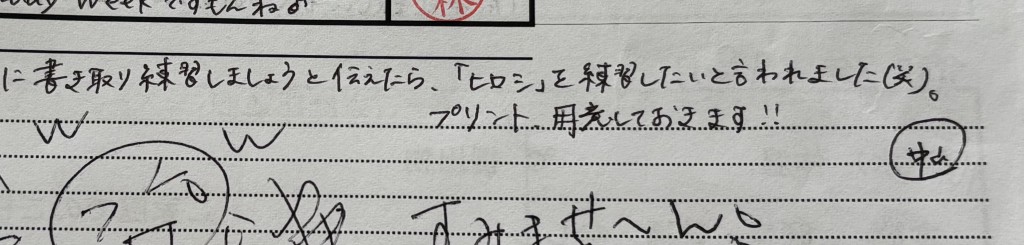 Weekですもんねぇ
に書き取り練習しましょうと伝えたら、「ヒロシ」を練習したいと言われました(笑)。
プリント、用意しておきます!!
W W
すみませ〜ん。